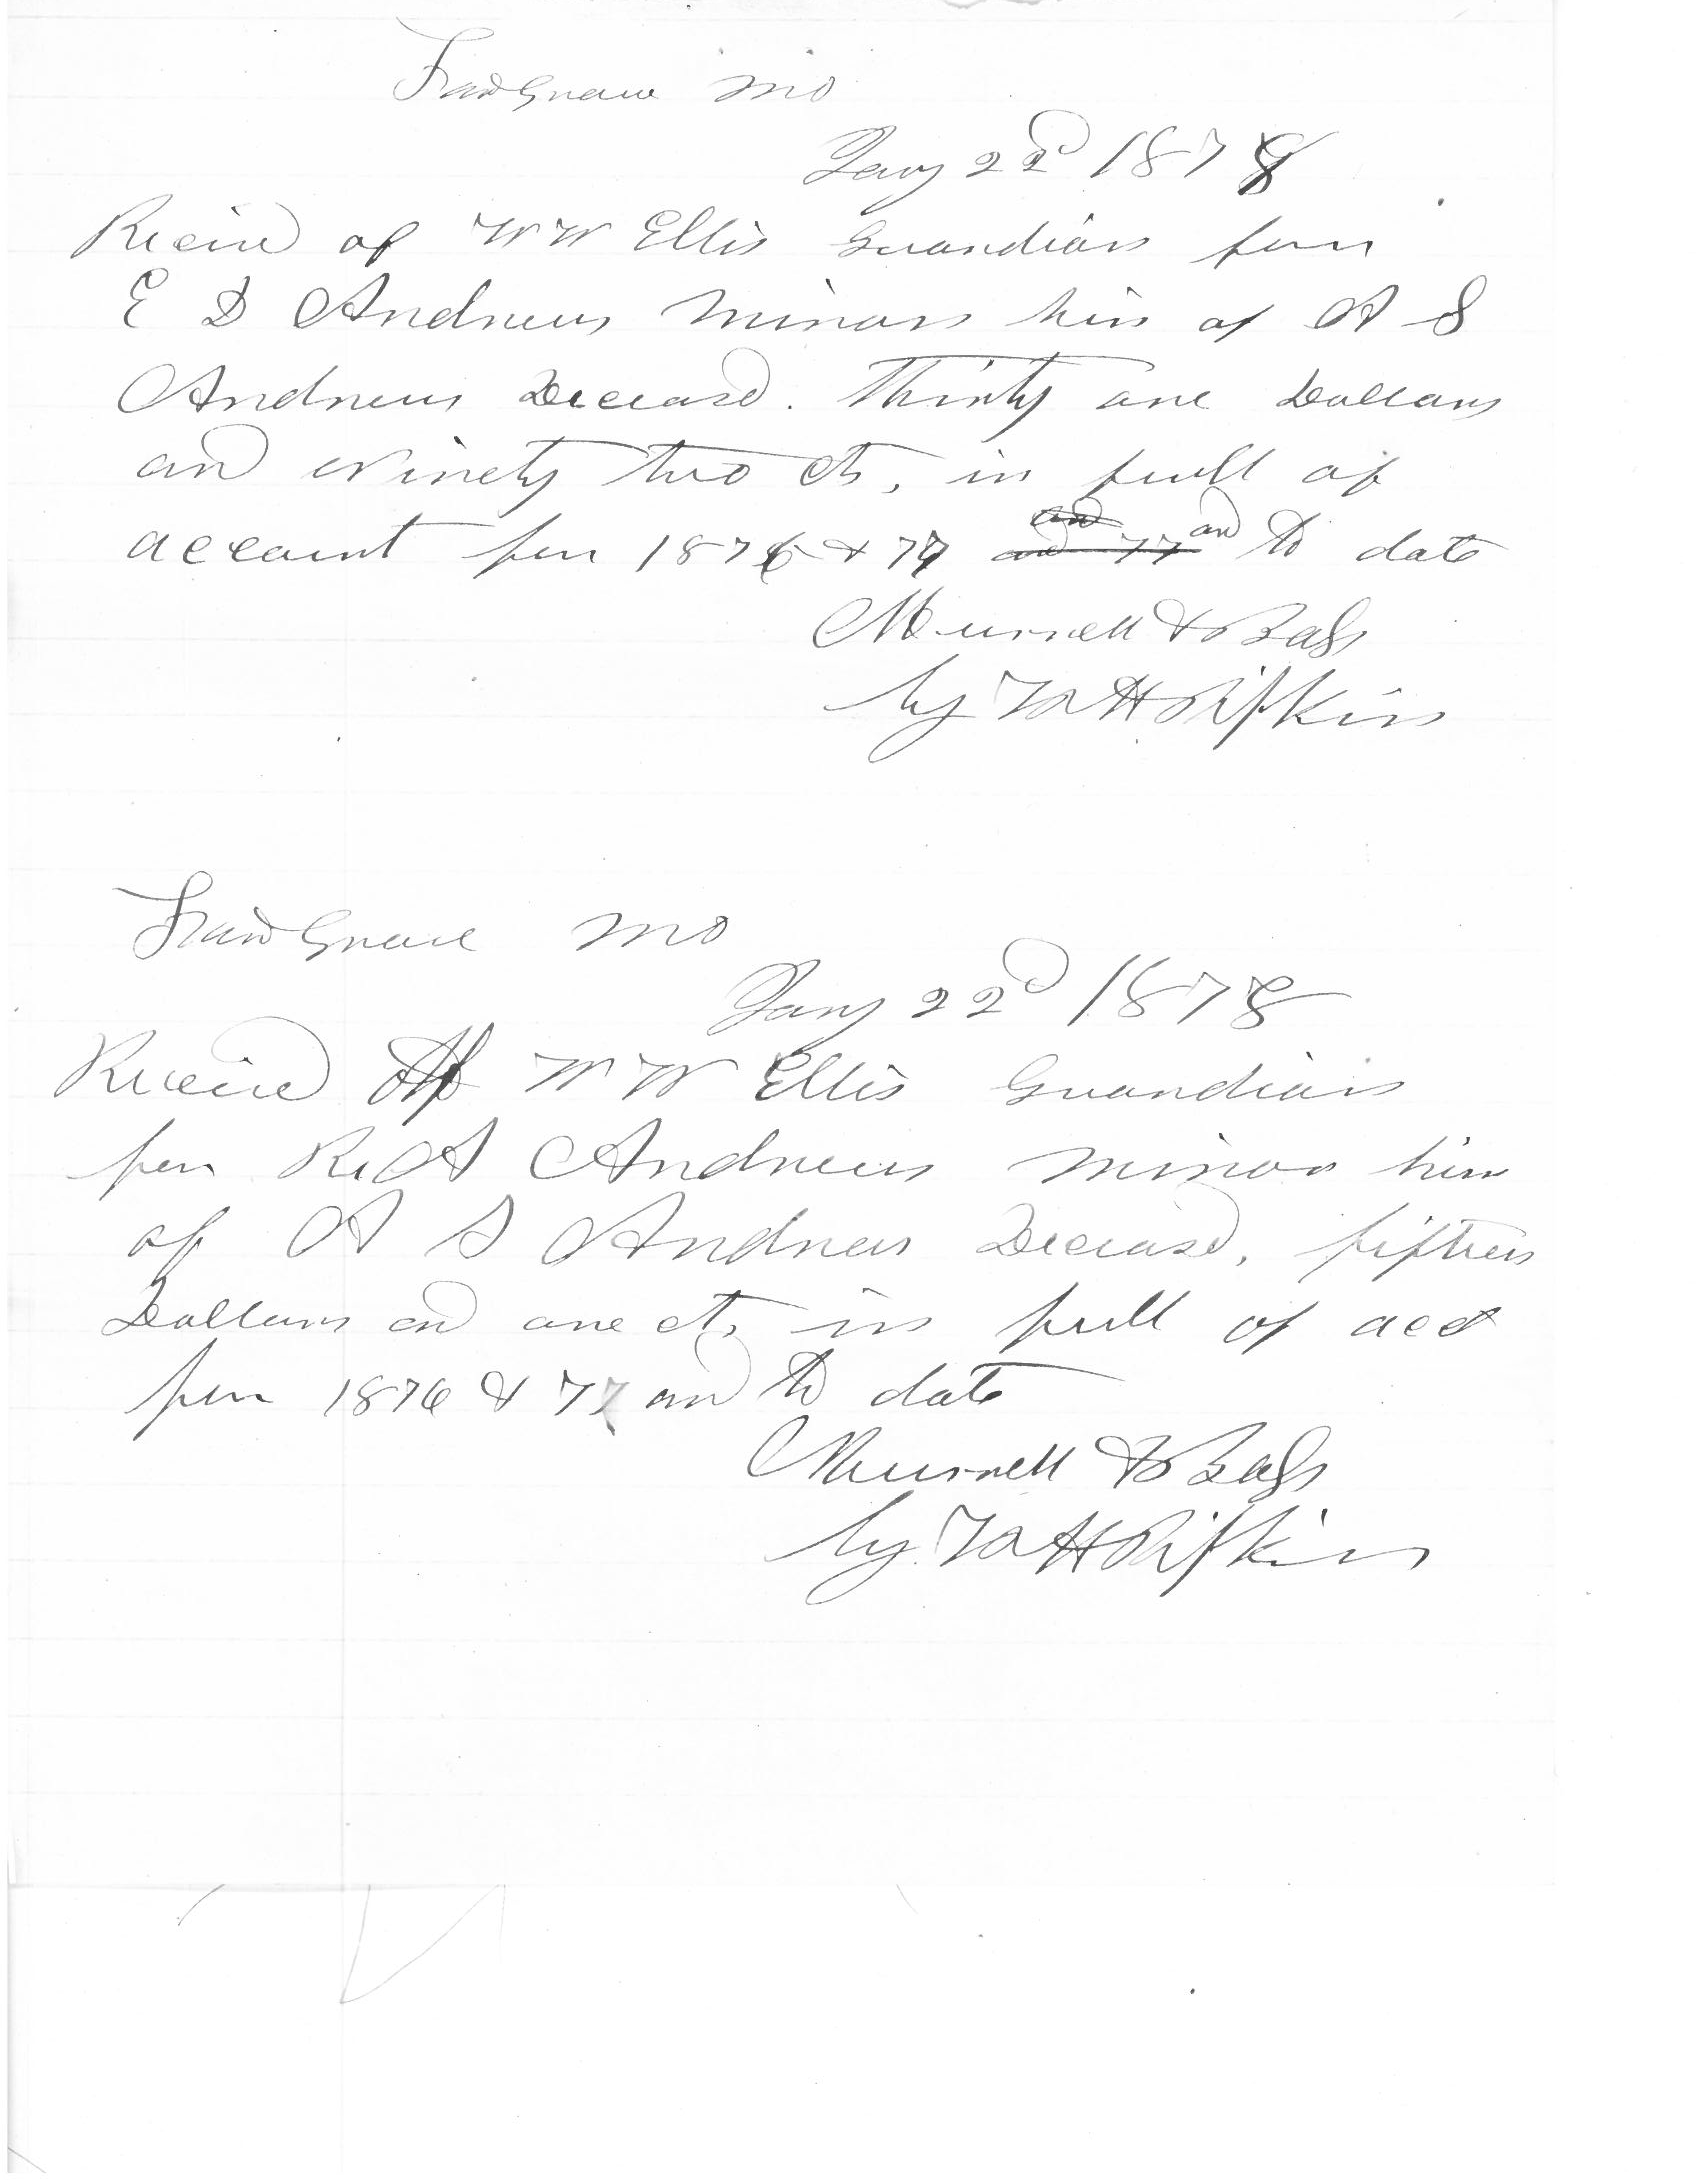 Fair Grove Mo
Jany 22d 1878
Receivd of W W Ellis Guardian for
E D Andrews minor heir of A S
Andrews Deceasd. Thirty one Dollars
and Ninety two cts, in full of
account for 1876 & 77 and to date
Murrell &
by W H Pipkin
Fair Grove Mo
Jany 22d 1878
Receivd of W W Ellis Guardian
for R A Andrews minor heir
of A S Andrews Deceasd, fifteen
Dollars and one ct, in full of acct
for 1876 & 77 and to date
Murrell &
by W H Pipkin